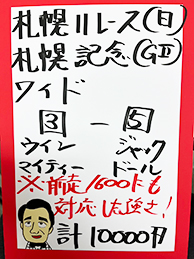 札幌11レース(日)
札幌記念(GⅡ)
ワイド
3 - 5
ウイン ジャック
マイティー ドール
※前走1600ｍも
対応した強さ!
計10000円